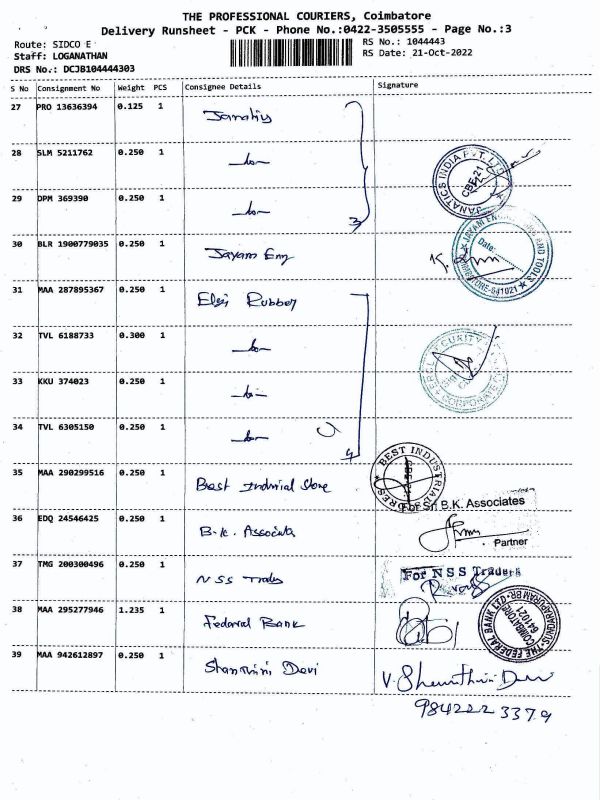 THE PROFESSIONAL COURIERS, Coimbatore
Delivery Runsheet - PCK - Phone No.:0422-3505555 - Page No.:3
Route: SIDCO E
RS No.: 1044443
Staff: LOGANATHAN
RS Date: 21-Oct-2022
DRS No.: DCJB104444303
S No Consignment No Weight PCS Consignee Details Signature
27 PRO 13636394 0.125 1
28 SLM 5211762 0.250 1 -do-
29 DPM 369390 0.250 1 -do-
3
JANATICS INDIA PVT. LTD
CBE-21
30 BLR 1900779035 0.250 1 Jayam Eng
JAYAM ENGINEERING AND TOOLS
Date:
COIMBATORE-641021
31 MAA 287895367 0.250 1 Elgi Rubber
32 TVL 6188733 0.300 1 -do-
33 KKU 374023 0.250 1 -do-
34 TVL 6305150 0.250 1 -do-
4
SECURITY
CORPORATE
35 MAA 290299516 0.250 1 Best Industrial Store
BEST INDUSTRIAL
For Sri B.K. Associates
36 EDQ 24546425 0.250 1 B.K. Associates
Partner
37 TMG 200300496 0.250 1 NSS Traders
For NSS Traders
38 MAA 295277946 1.235 1 Federal Bank
THE FEDERAL BANK LTD
COIMBATORE
641021
39 MAA 942612897 0.250 1 Shanthini Devi
V. Shanthini Devi
984222 3379